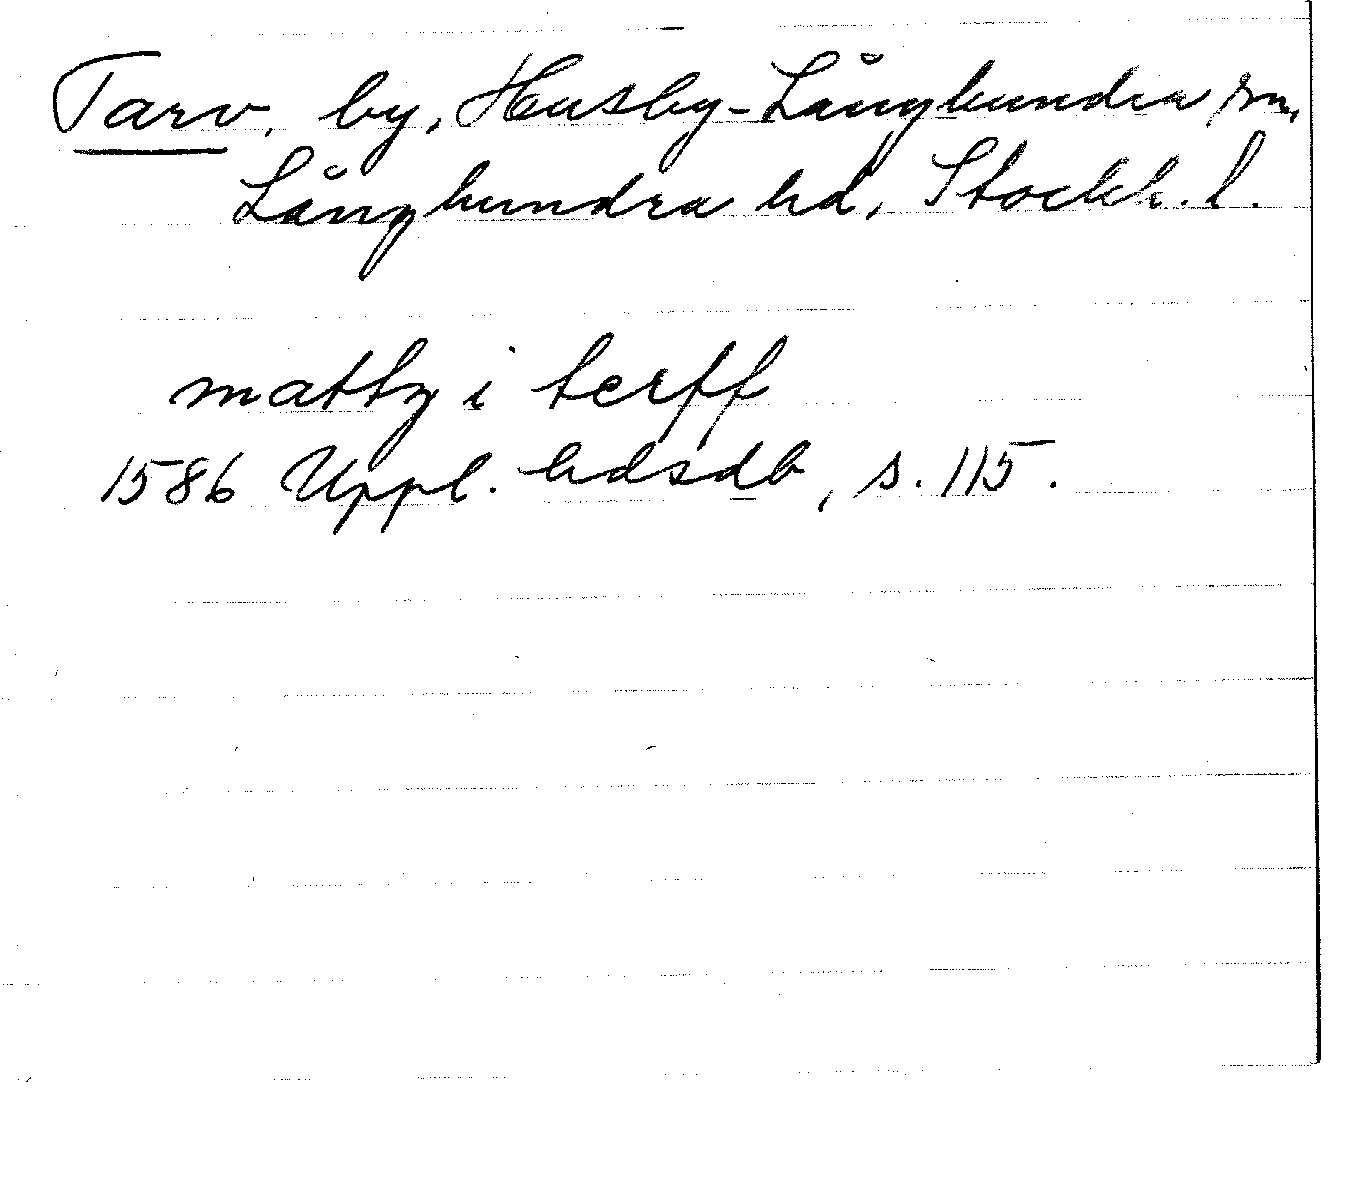 Tarv, by, Husby-Långhundra sn,
Långhundra hd, Stockh. l.
matts i terff
1586 Uppl. hdsdb, s. 115.